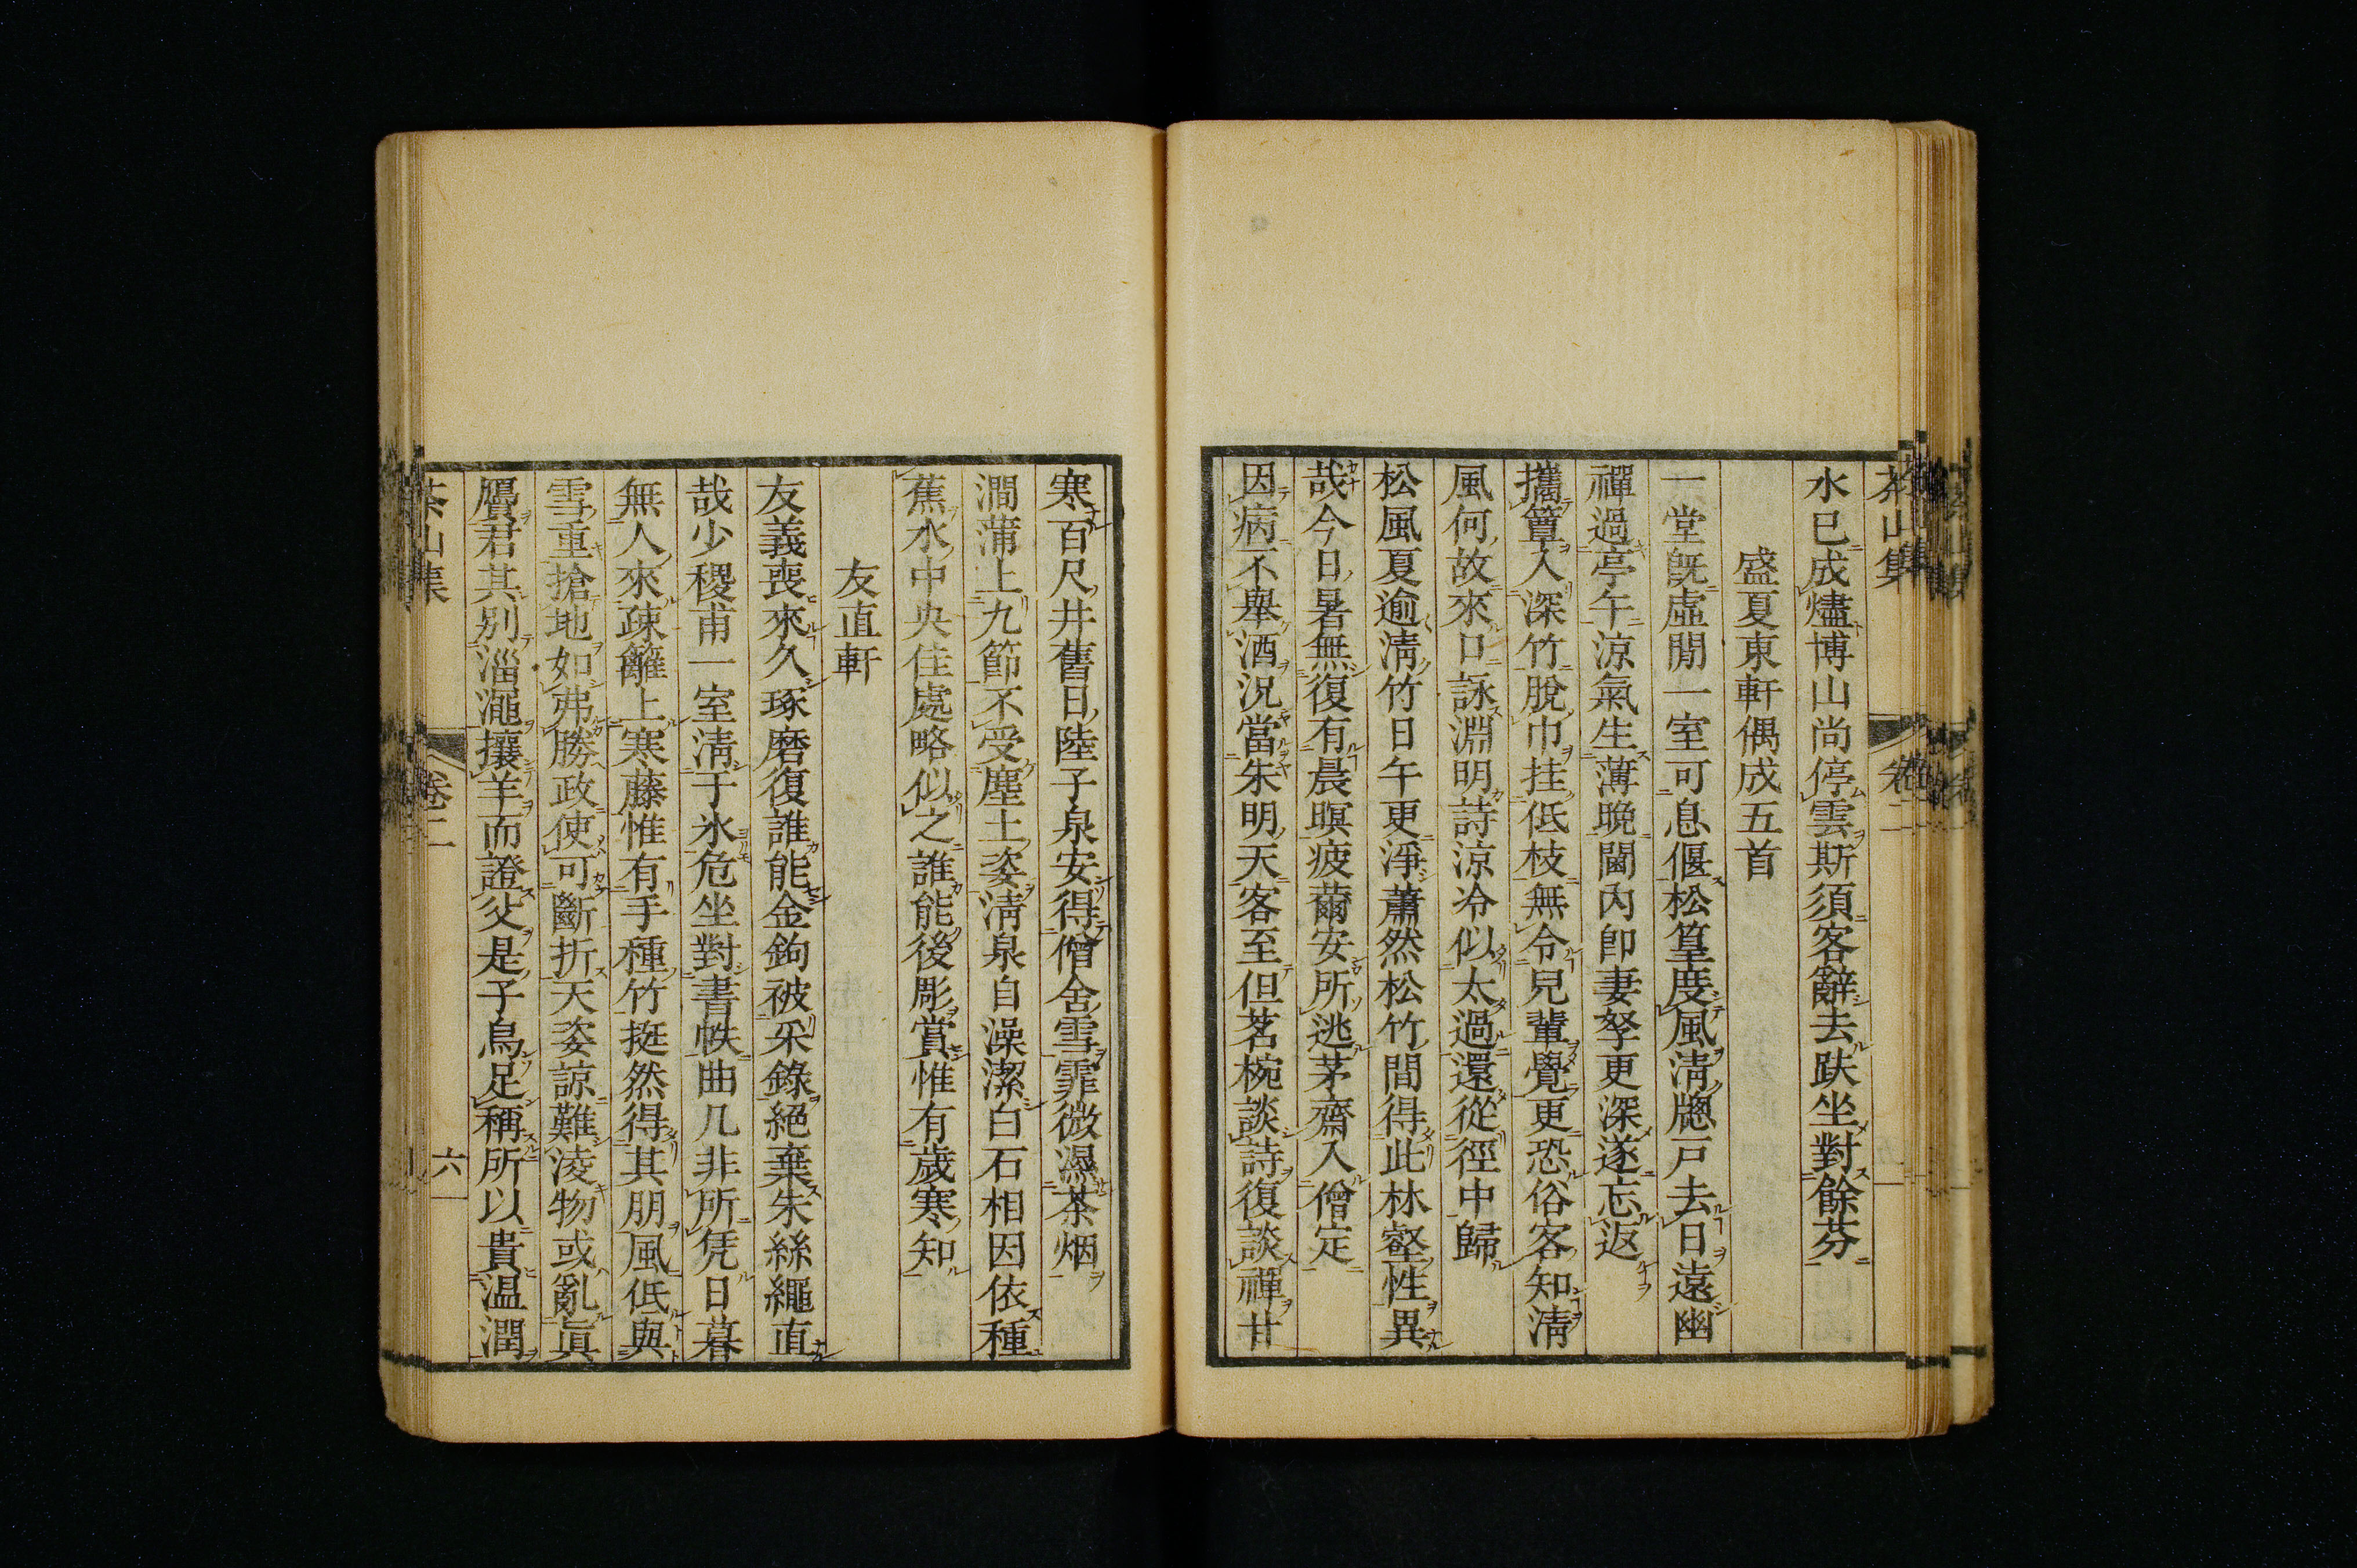 茶山集 卷二
水已成燼博山尚停雲斯須客辭去趺坐對餘芬
盛夏東軒偶成五首
一堂旣虛閒一室可息偃松篁度風淸牕戸去日遠幽
禪過亭午涼氣生薄晩閫內卽妻孥更深遂忘返
攜簟入深竹脫巾挂低枝無令兒輩覺更恐俗客知淸
風何故來口詠淵明詩涼冷似太過還從徑中歸
松風夏逾淸竹日午更淨蕭然松竹間得此林壑性異
哉今日暑無復有晨暝疲薾安所逃茅齋入僧定
因病不舉酒況當朱明天客至但茗椀談詩復談禪甘
寒百尺井舊日陸子泉安得僧舍雪霏微濕茶烟
澗蒲上九節不受塵土姿淸泉自澡潔白石相因依種
蕉水中央佳處略似之誰能後彫賞惟有歲寒知
友直軒
友義喪來久琢磨復誰能金鉤被采錄絕棄朱絲繩直
哉少稷甫一室淸于氷危坐對書帙曲几非所凭日暮
無人來疎籬上寒藤惟有手種竹挺然得其朋風低與
雪重搶地如弗勝政使可斷折天姿諒難淩物或亂眞
贋君其別淄澠攘羊而證父是子烏足稱所以貴温潤
茶山集 卷二 六